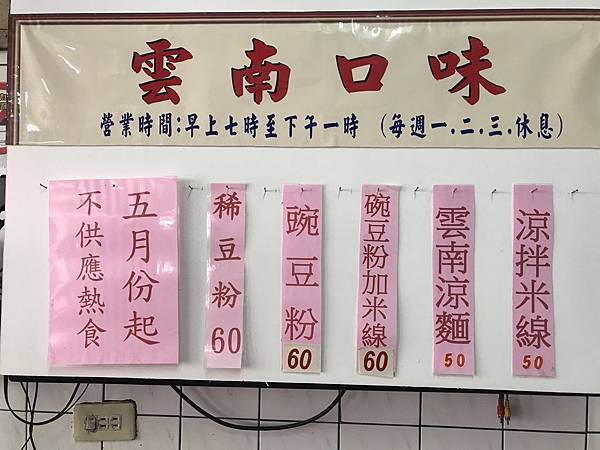 雲南口味
營業時間:早上七時至下午一時 (每週一.二.三.休息)
涼拌米線
50
雲南涼麵
50
碗豆粉加米線
60
豌豆粉
60
稀豆粉
60
五月份起
不供應熱食